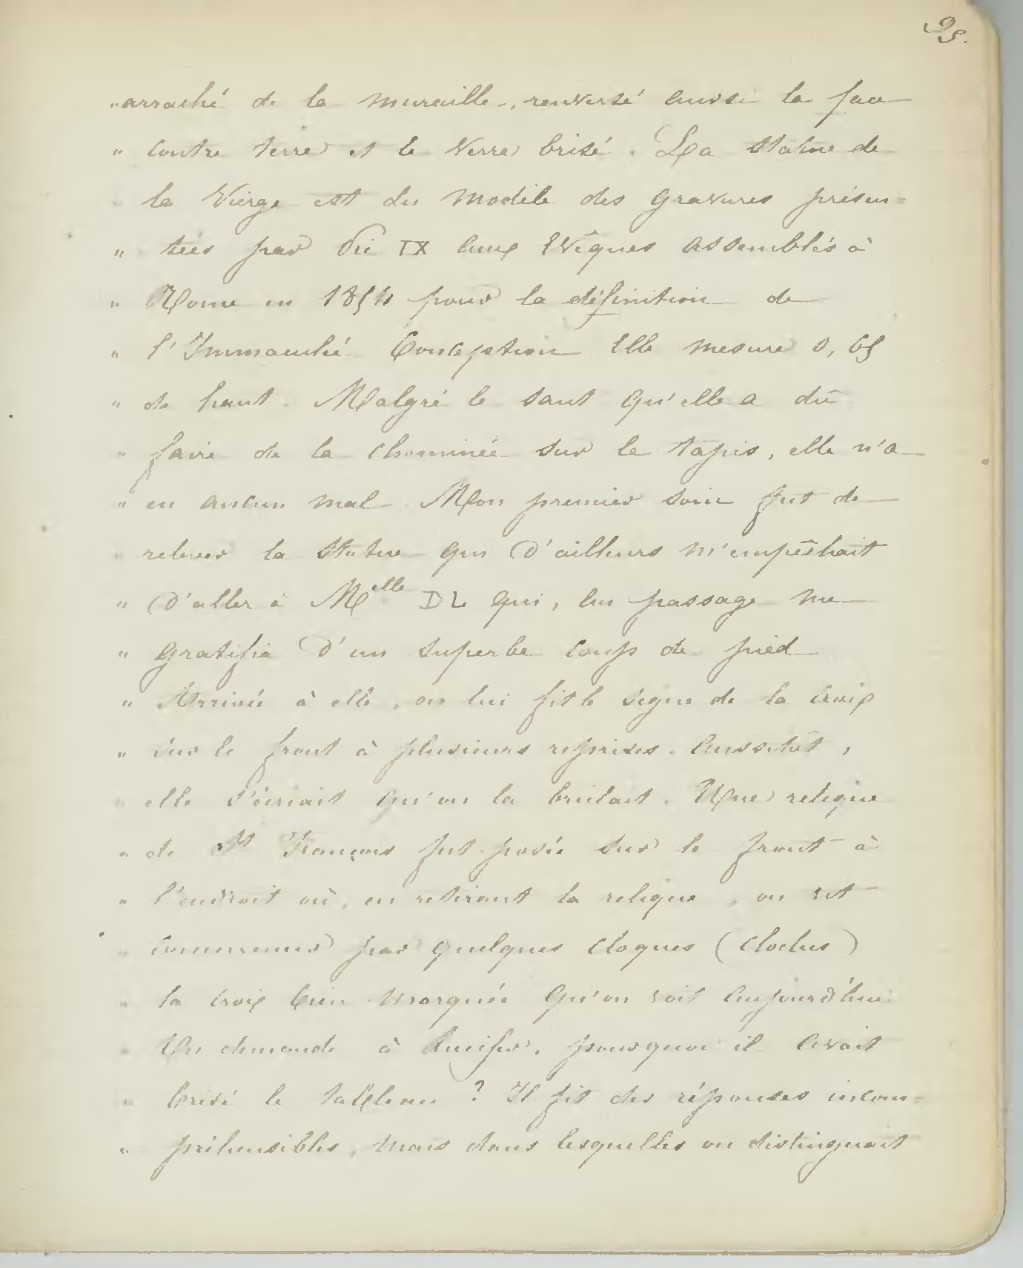 95.
" arraché de la muraille, renversé aussi la face
" contre terre et le verre brisé. La statue de
" la Vierge est du modèle des gravures présen=
" tées par Pie IX aux Evêques assemblés à
" Rome en 1854 pour la définition de
" l'Immaculé Conception Elle mesure 0,65
" de haut. Malgré le saut qu'elle a dû
" faire de la cheminée sur le tapis, elle n'a
" eu aucun mal. Mon premier soin fut de
" relever la statue qui d'ailleurs m'empêchait
" d'aller à Melle DL qui, au passage me
" gratifia d'un superbe coup de pied
" Arrivée à elle, on lui fit le signe de la croix
" sur le front à plusieurs reprises. Aussitôt,
" elle s'écriait qu'on la brulait. Une relique
" de St François fut posée sur le front à
" l'endroit où, en retirant la relique, on vit
" commencer par quelques cloques (cloches)
" la croix bien marquée qu'on voit aujourd'hui
" On demande à Lucifer, pourquoi il avait
" brisé le tableau ? Il fit des réponses incom=
" préhensibles, mais dans lesquelles on distinguait